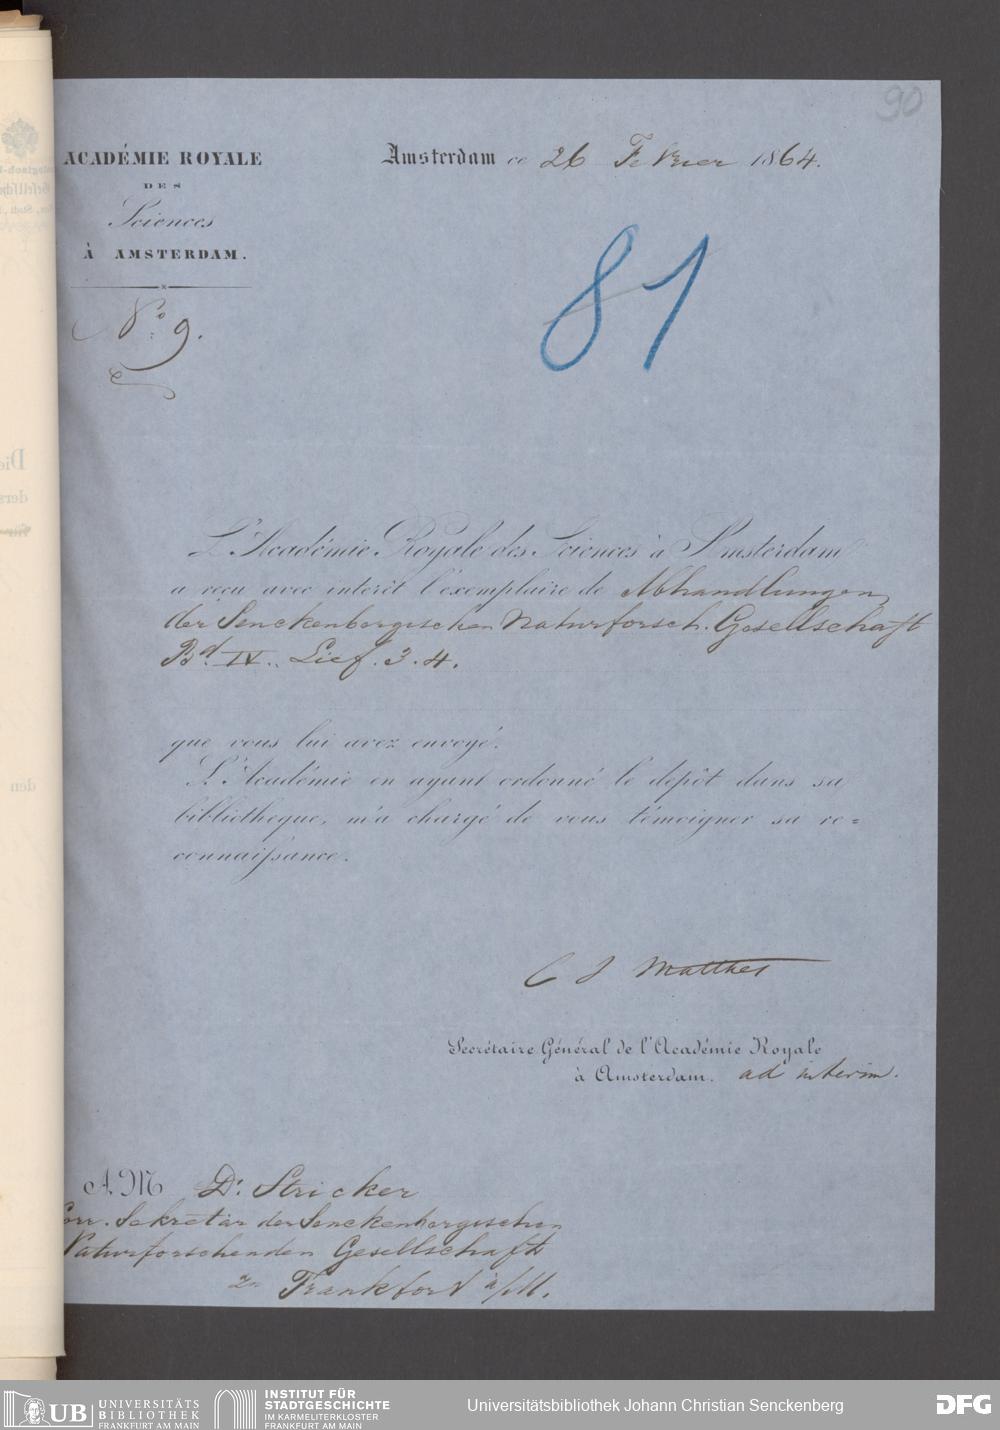 90
ACADÉMIE ROYALE
DES
Sciences
À AMSTERDAM.
Nº 9.
Amsterdam ce 26 Febvrier 1864.
81
L'Académie Royale des Sciences à Amsterdam
a reçu avec interêt l'exemplaire de Abhandlungen
der Senckenbergischen Naturforsch. Gesellschaft
Bd. IV. Lief. 3. 4.
que vous lui avez envoyé.
L'Académie en ayant ordonné le depôt dans sa
bibliotheque, m'a chargé de vous témoigner sa re=
connaiſsance.
C J Matthes
Secrétaire Général de l'Académie Royale
à Amsterdam. ad interim.
A. M Dr. Stricker
Corr. Sekretär der Senckenbergischen
Naturforschenden Gesellschaft
zu Frankfort a/M.
Die
ders
für
den
UB UNIVERSITÄTS
BIBLIOTHEK
FRANKFURT AM MAIN
INSTITUT FÜR
STADTGESCHICHTE
IM KARMELITERKLOSTER
FRANKFURT AM MAIN
Universitätsbibliothek Johann Christian Senckenberg
DFG